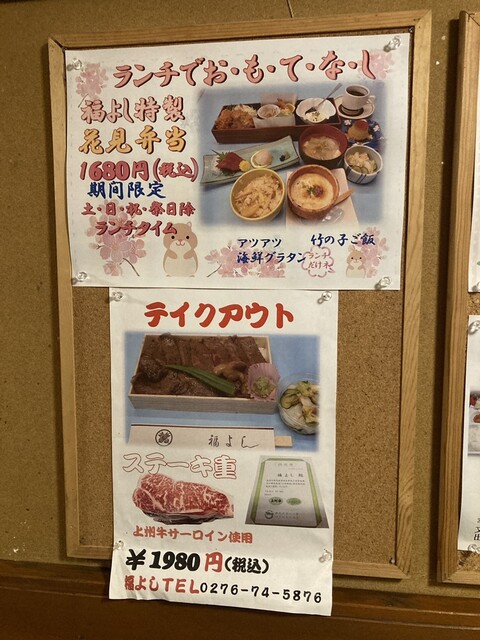 ランチでお・も・て・な・し
福よし特製
花見弁当
1680円(税込)
期間限定
土・日・祝・祭日除
ランチタイム
アツアツ
海鮮グラタン
竹の子ご飯
ランチ
だけネ
テイクアウト
福よし
ステーキ重
上州牛サーロイン使用
￥1980円(税込)
福よしTEL0276-74-5876